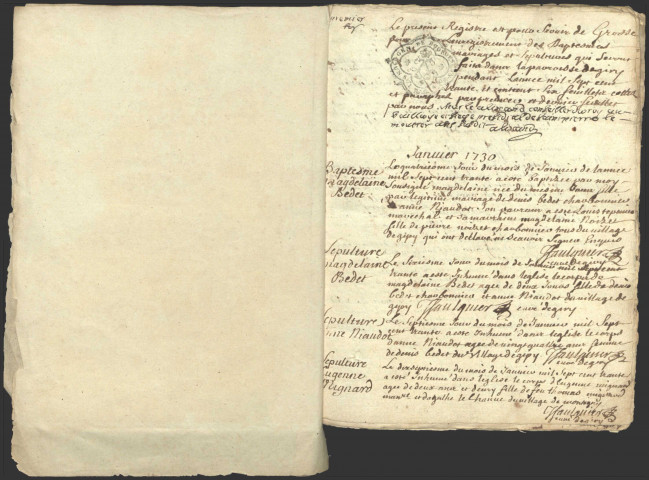 premier
Le present Registre est pour servir de Grosse
pour Lenregistrement des Baptesmes
mariages et sepultures qui seront
faits dans la parroisse degipy
pendant Lannee mil sept cent
trente et contient six feuillets cotté
et paraphés par premier et dernier feuillet
par nous
Janvier 1730
Baptesme
Magdelaine
Bedet
Le quatriesme Jour du mois de Janvier de lannee
mil sept cent trente a esté baptisée par moy
soussigné magdelaine née du mesme jour fille
par legitime mariage de denis bedet charbonnier
et anne Niaudot son parrain a esté Louis
marechal et sa marraine magdelaine Noiret
fille de pierre noiret charbonnier tous du village
degipy qui ont déclaré ne scavoir signer
ffaulquier
curé degipy
Sepulture
magdelaine
Bedet
Le sixiesme Jour du mois de Janvier mil sept cent
trante a esté Inhumé dans leglise le corps de
magdelaine Bedet agee de deux Jours fille de denis
bedet charbonnier et anne Niaudot du village de
gipy ffaulquier curé degipy
Sepulture
Anne Niaudot
Le septiesme Jour du mois de Janvier mil sept
cent trante a esté Inhumé dans leglise le corps
danne Niaudot agee de vingt quatre ans femme
de denis bedet du village degipy ffaulquier
curé degipy
Sepulture
Eugenne
Mignard
Le dixseptiesme du mois de Janvier mil sept cent trante
a esté Inhumé dans leglise le corps deugenne mignard
agee de deux ans et demy fille de feu thomas mignard
du village de montagny
ffaulquier
curé degipy